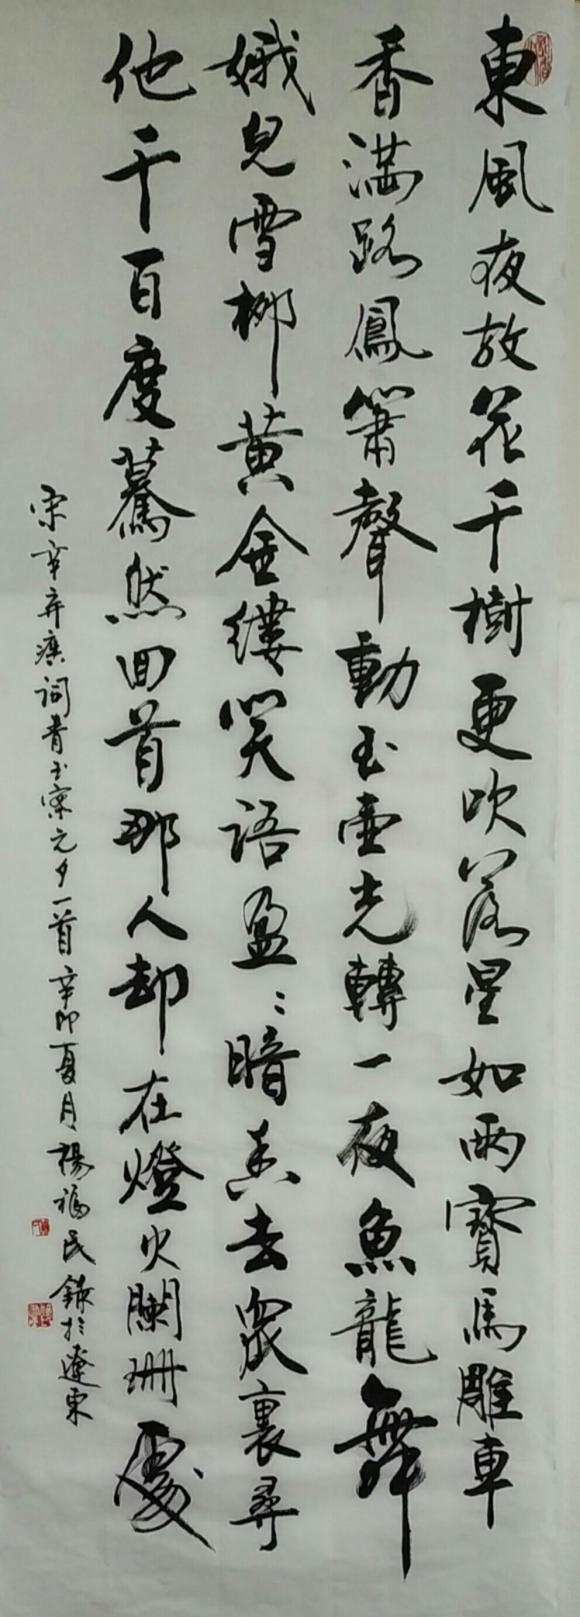 東風夜放花千樹更吹落星如雨寶馬雕車
香滿路鳳簫聲動玉壺光轉一夜魚龍舞
娥兒雪柳黃金縷笑語盈〻暗香去眾裏尋
他千百度驀然回首那人却在燈火闌珊處
宋辛弃疾詞青玉案元夕一首辛卯夏月楊福民錄於遼東